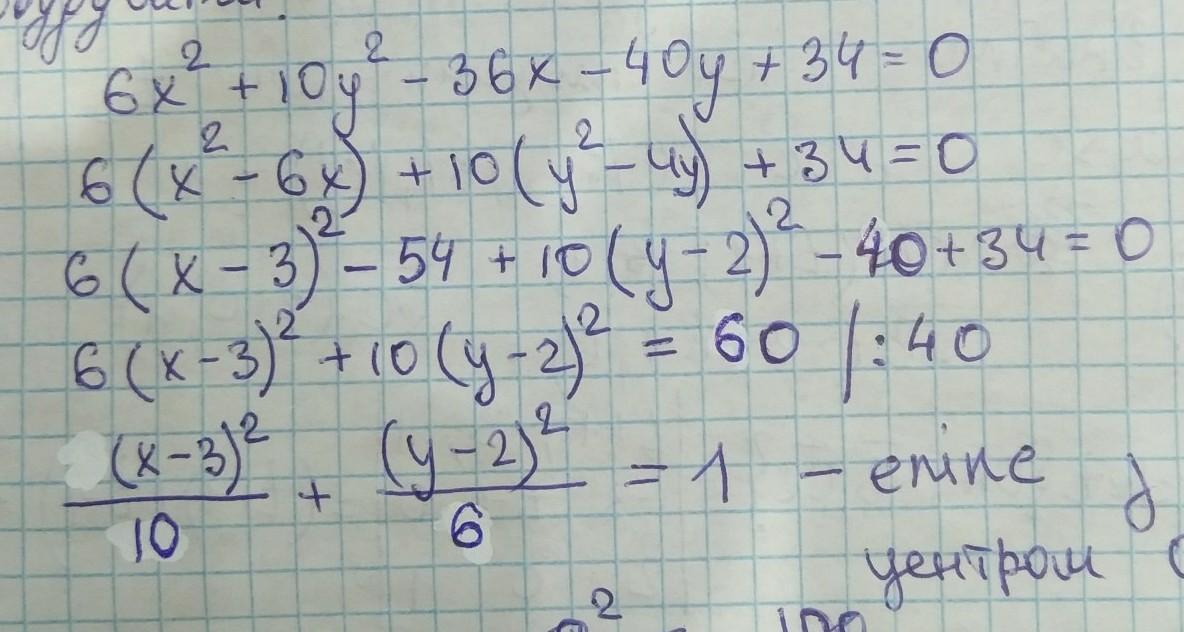 6x² + 10y² - 36x - 40y + 34 = 0
6(x² - 6x) + 10(y² - 4y) + 34 = 0
6(x - 3)² - 54 + 10(y - 2)² - 40 + 34 = 0
6(x - 3)² + 10(y - 2)² = 60 /: 40
(x - 3)²/10 + (y - 2)²/6 = 1 - еліпс
центром